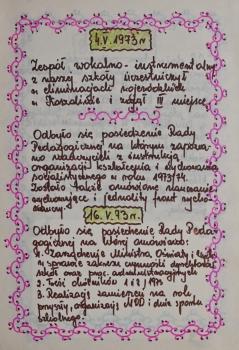 4.V.1973 r
Zespół wokalno - instrumentalny
z naszej szkoły uczestniczył
w eliminacjach wojewódzkich
w Koszalinie i zajął III miejsce
Odbyło się posiedzenie Rady
Pedagogicznej na którym zapozna-
no nauczycieli z instrukcją
organizacji kształcenia i wychowania
socjalistycznego w roku 1973/74.
Zostało także omówione nauczanie
wychowujące i jednolity front wycho-
wawczy.
16.V.73 r.
Odbyło się posiedzenie Rady Peda-
gogicznej na której omówiono:
1. Zarządzenie Ministra Oświaty i
w sprawie zakresu czynności
szkół oraz prac. administracyjnych
2. Treść okólnika
3. Realizacja zamierzeń na rok,
przyszły, organizacji i dni sportu
szkolnego.